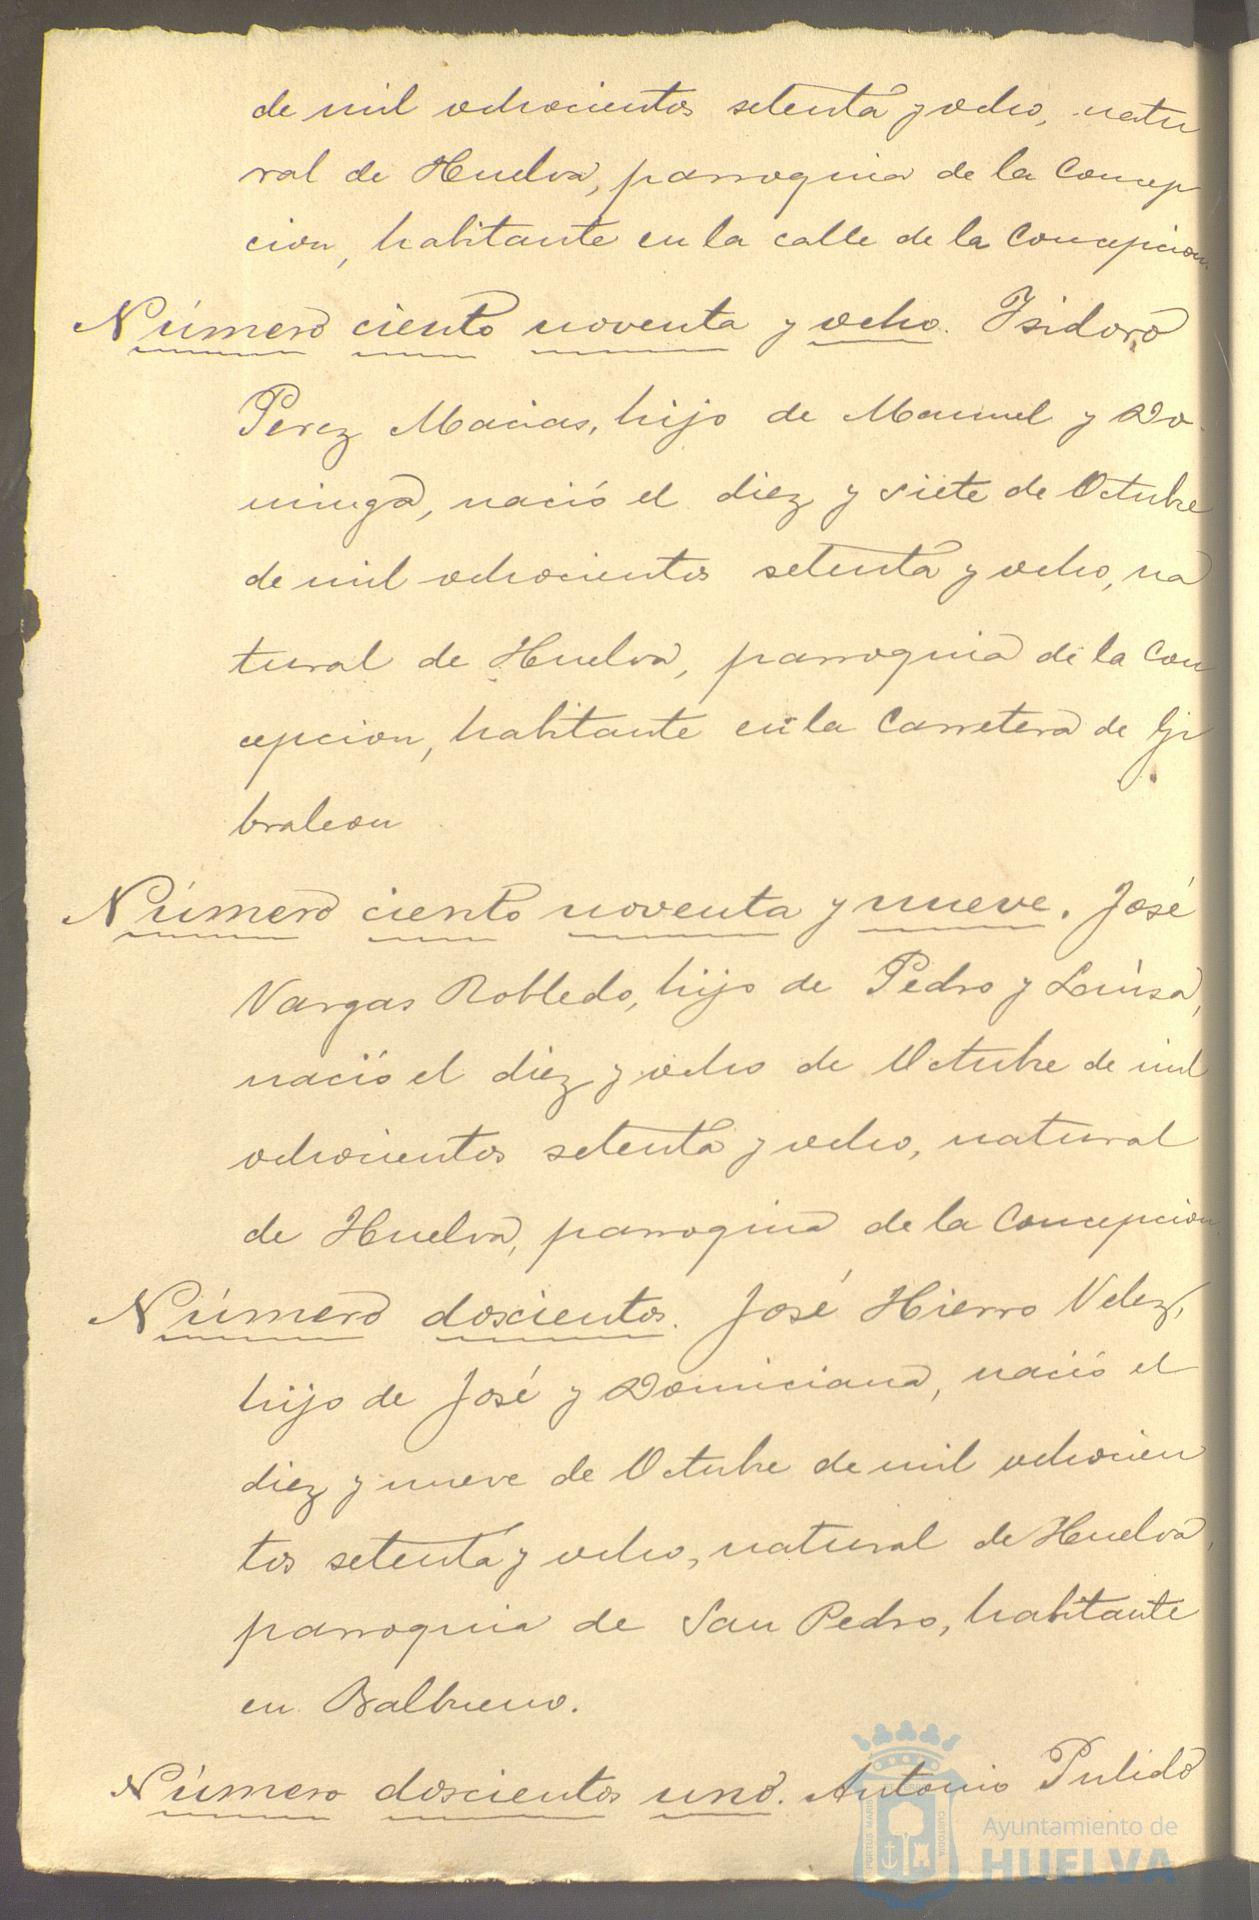 de mil ochocientos setenta y ocho, natu
ral de Huelva, parroquia de la Concep
cion, habitante en la calle de la Concepcion.
Número ciento noventa y ocho. Isidoro
Perez Macias, hijo de Manuel y Do-
minga, nació el diez y siete de Octubre
de mil ochocientos setenta y ocho, na
tural de Huelva, parroquia de la Con
cepcion, habitante en la Carretera de Gi
braleon
Número ciento noventa y nueve. José
Vargas Robledo, hijo de Pedro y Luisa,
nació el diez y ocho de Octubre de mil
ochocientos setenta y ocho, natural
de Huelva, parroquia de la Concepcion
Número doscientos. José Hierro Velez,
hijo de José y Domiciana, nació el
diez y nueve de Octubre de mil ochocien
tos setenta y ocho, natural de Huelva,
parroquia de San Pedro, habitante
en Balbueno.
Número doscientos uno. Antonio Pulido
PORTUS MARIS
CUSTODIA
Ayuntamiento de
HUELVA